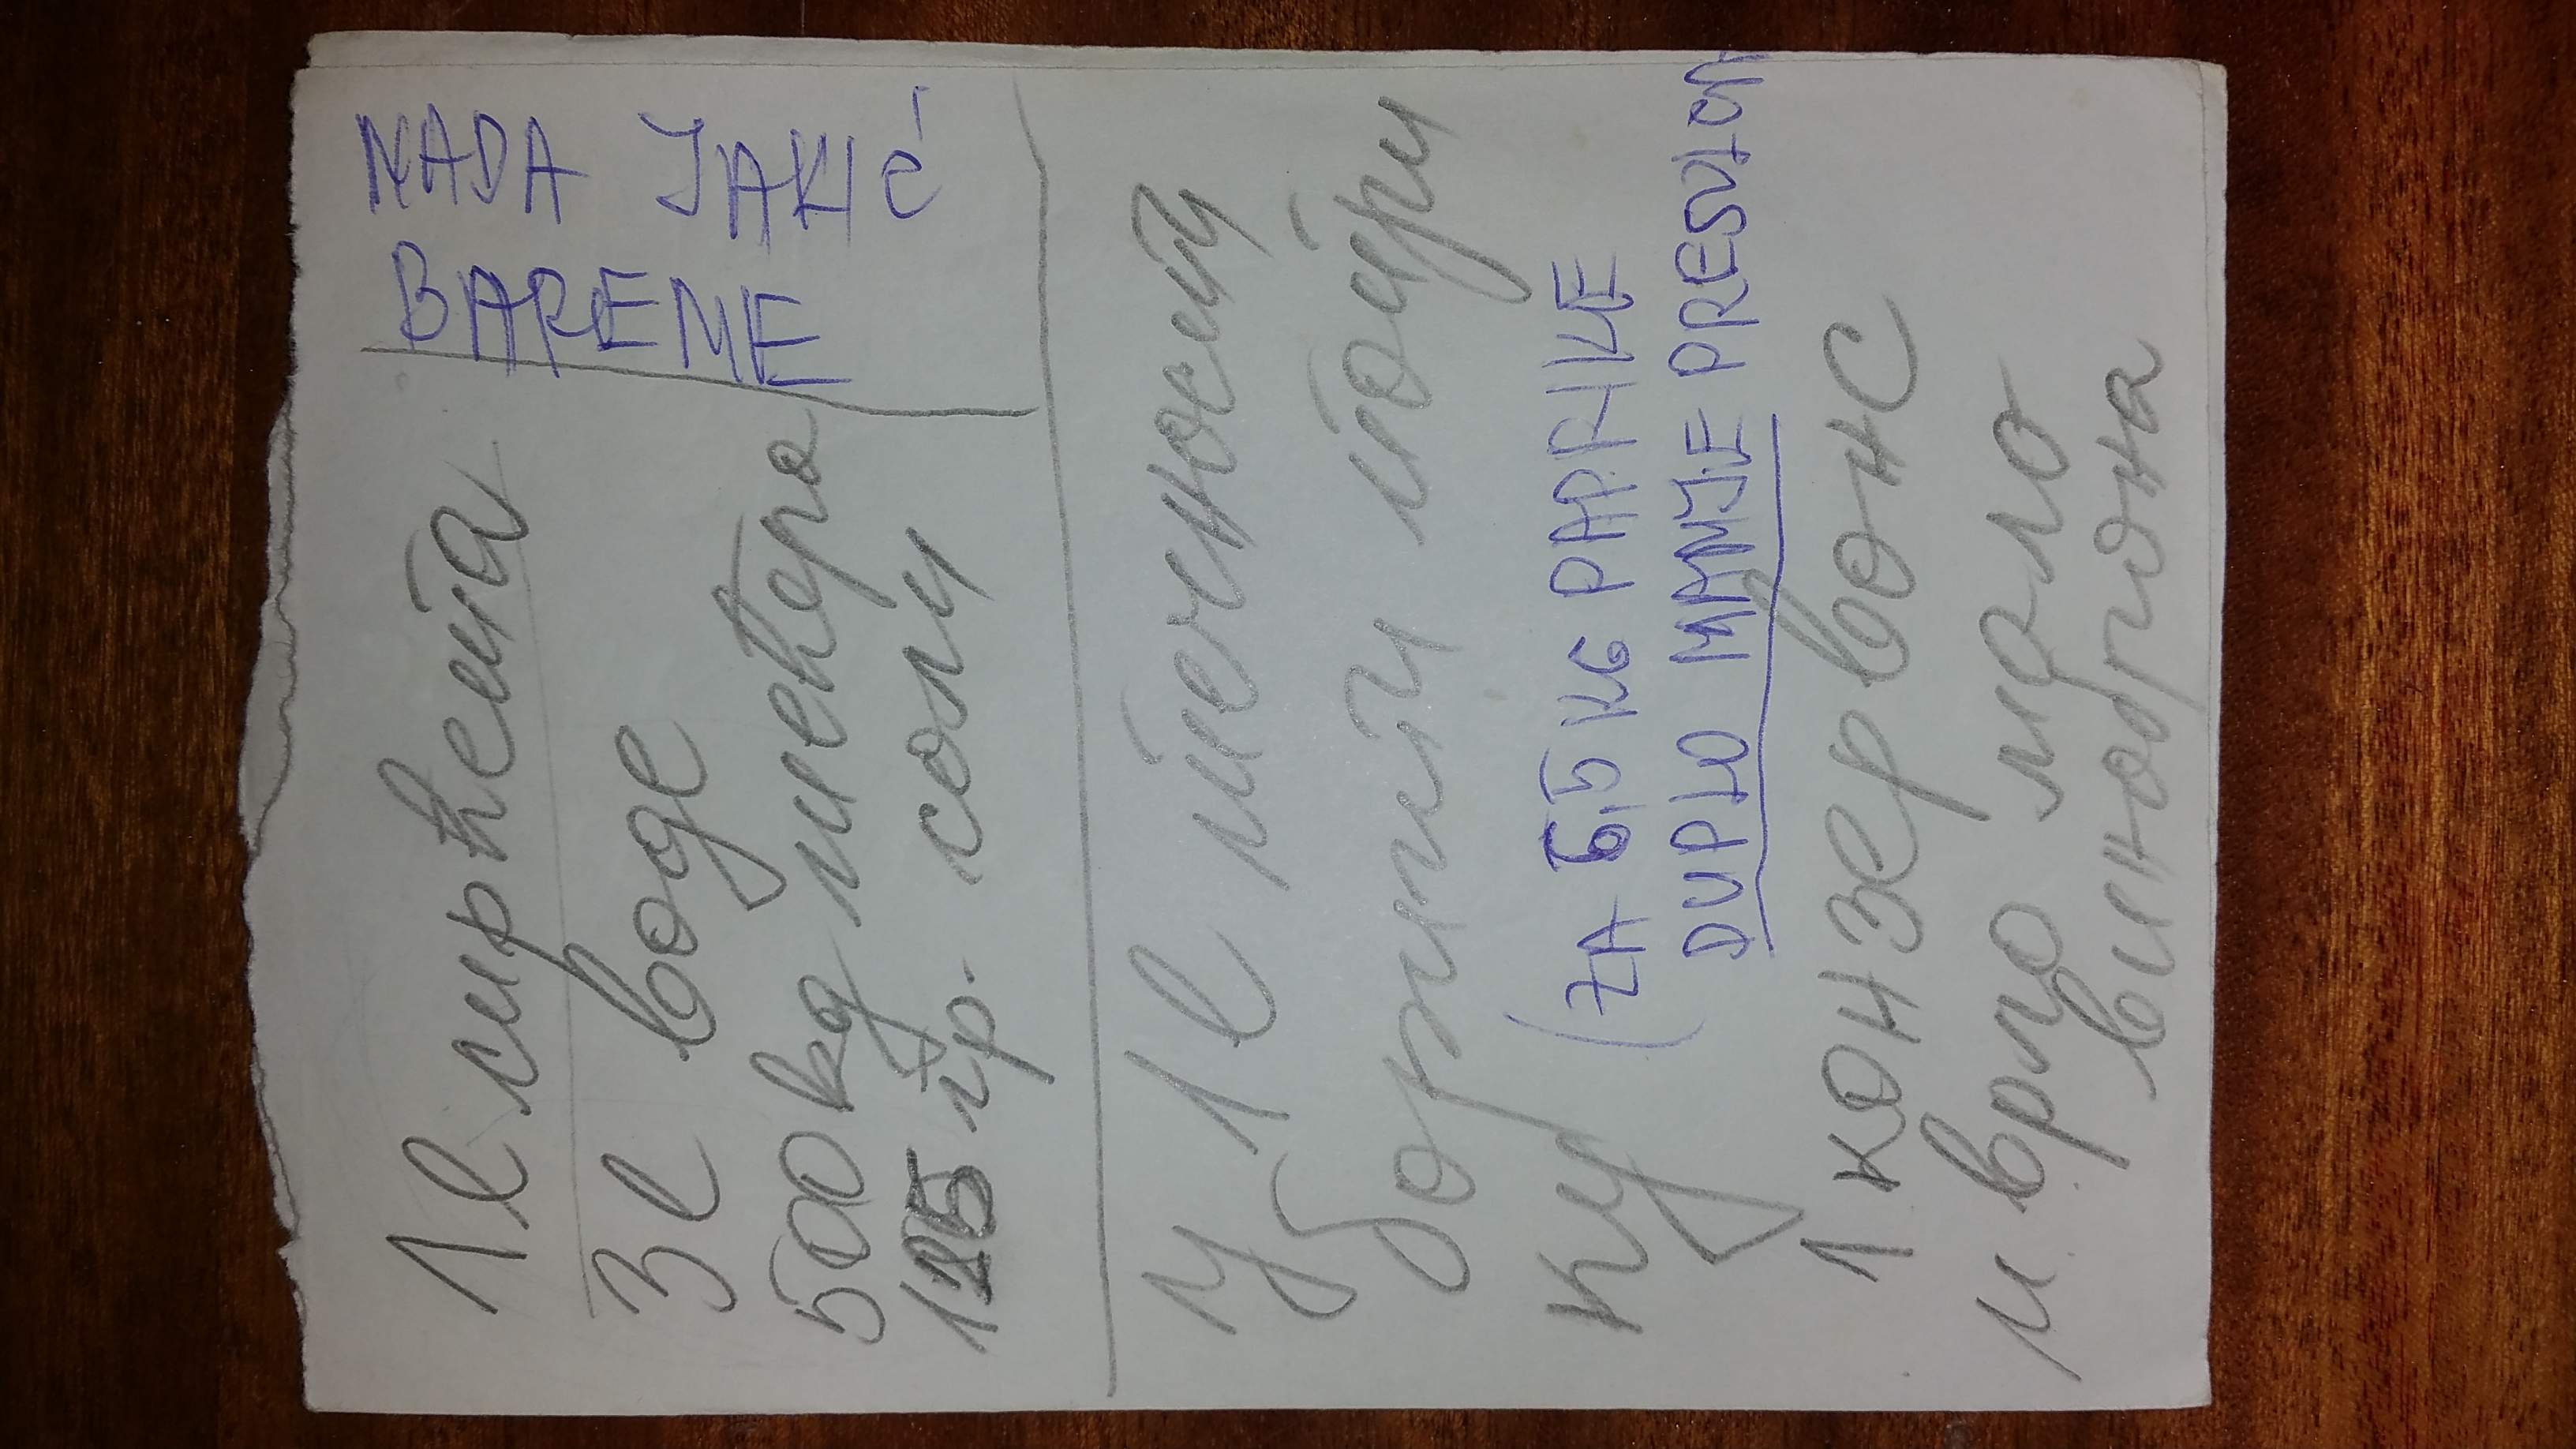 1l сирћета
3l воде
500 kg шећера
125 гр. соли
NADA JAKIĆ
BARENE
У 1l течности
борити папри
ку
(ZA 6,5 KG PAPRIKE
DUPLO MANJE PRESOLCA
1 конзерванс
и врло мало
винобрана